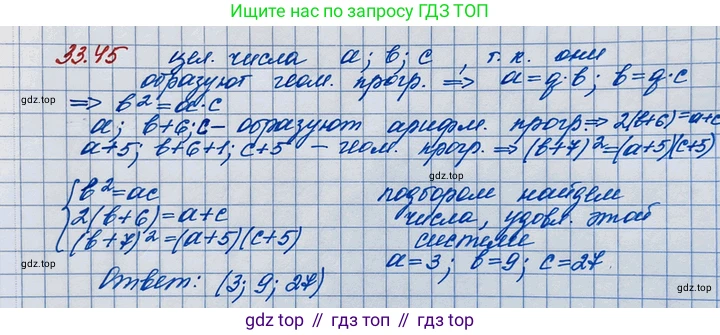 Ищите нас по запросу ГДЗ ТОП
33.45 цел. числа a; b; c, т. к. они
образуют геом. прогр. ⟹ a=q·b; b=q·c
gdz.top
⟹ b²=a·c
gdz.top
a; b+6; c – образуют арифм. прогр. ⟹ 2(b+6)=a+c
a+5; b+6+1; c+5 – геом. прогр. ⟹ (b+7)²=(a+5)(c+5)
gdz.top
{ b²=ac
2(b+6)=a+c
(b+7)²=(a+5)(c+5)
подбором найдем
числа, удовл. этой
системе
a=3; b=9; c=27.
gdz.top
gdz.top
Ответ: (3; 9; 27)
gdz.top
gdz.top
gdz.top // gdz.top // gdz.top